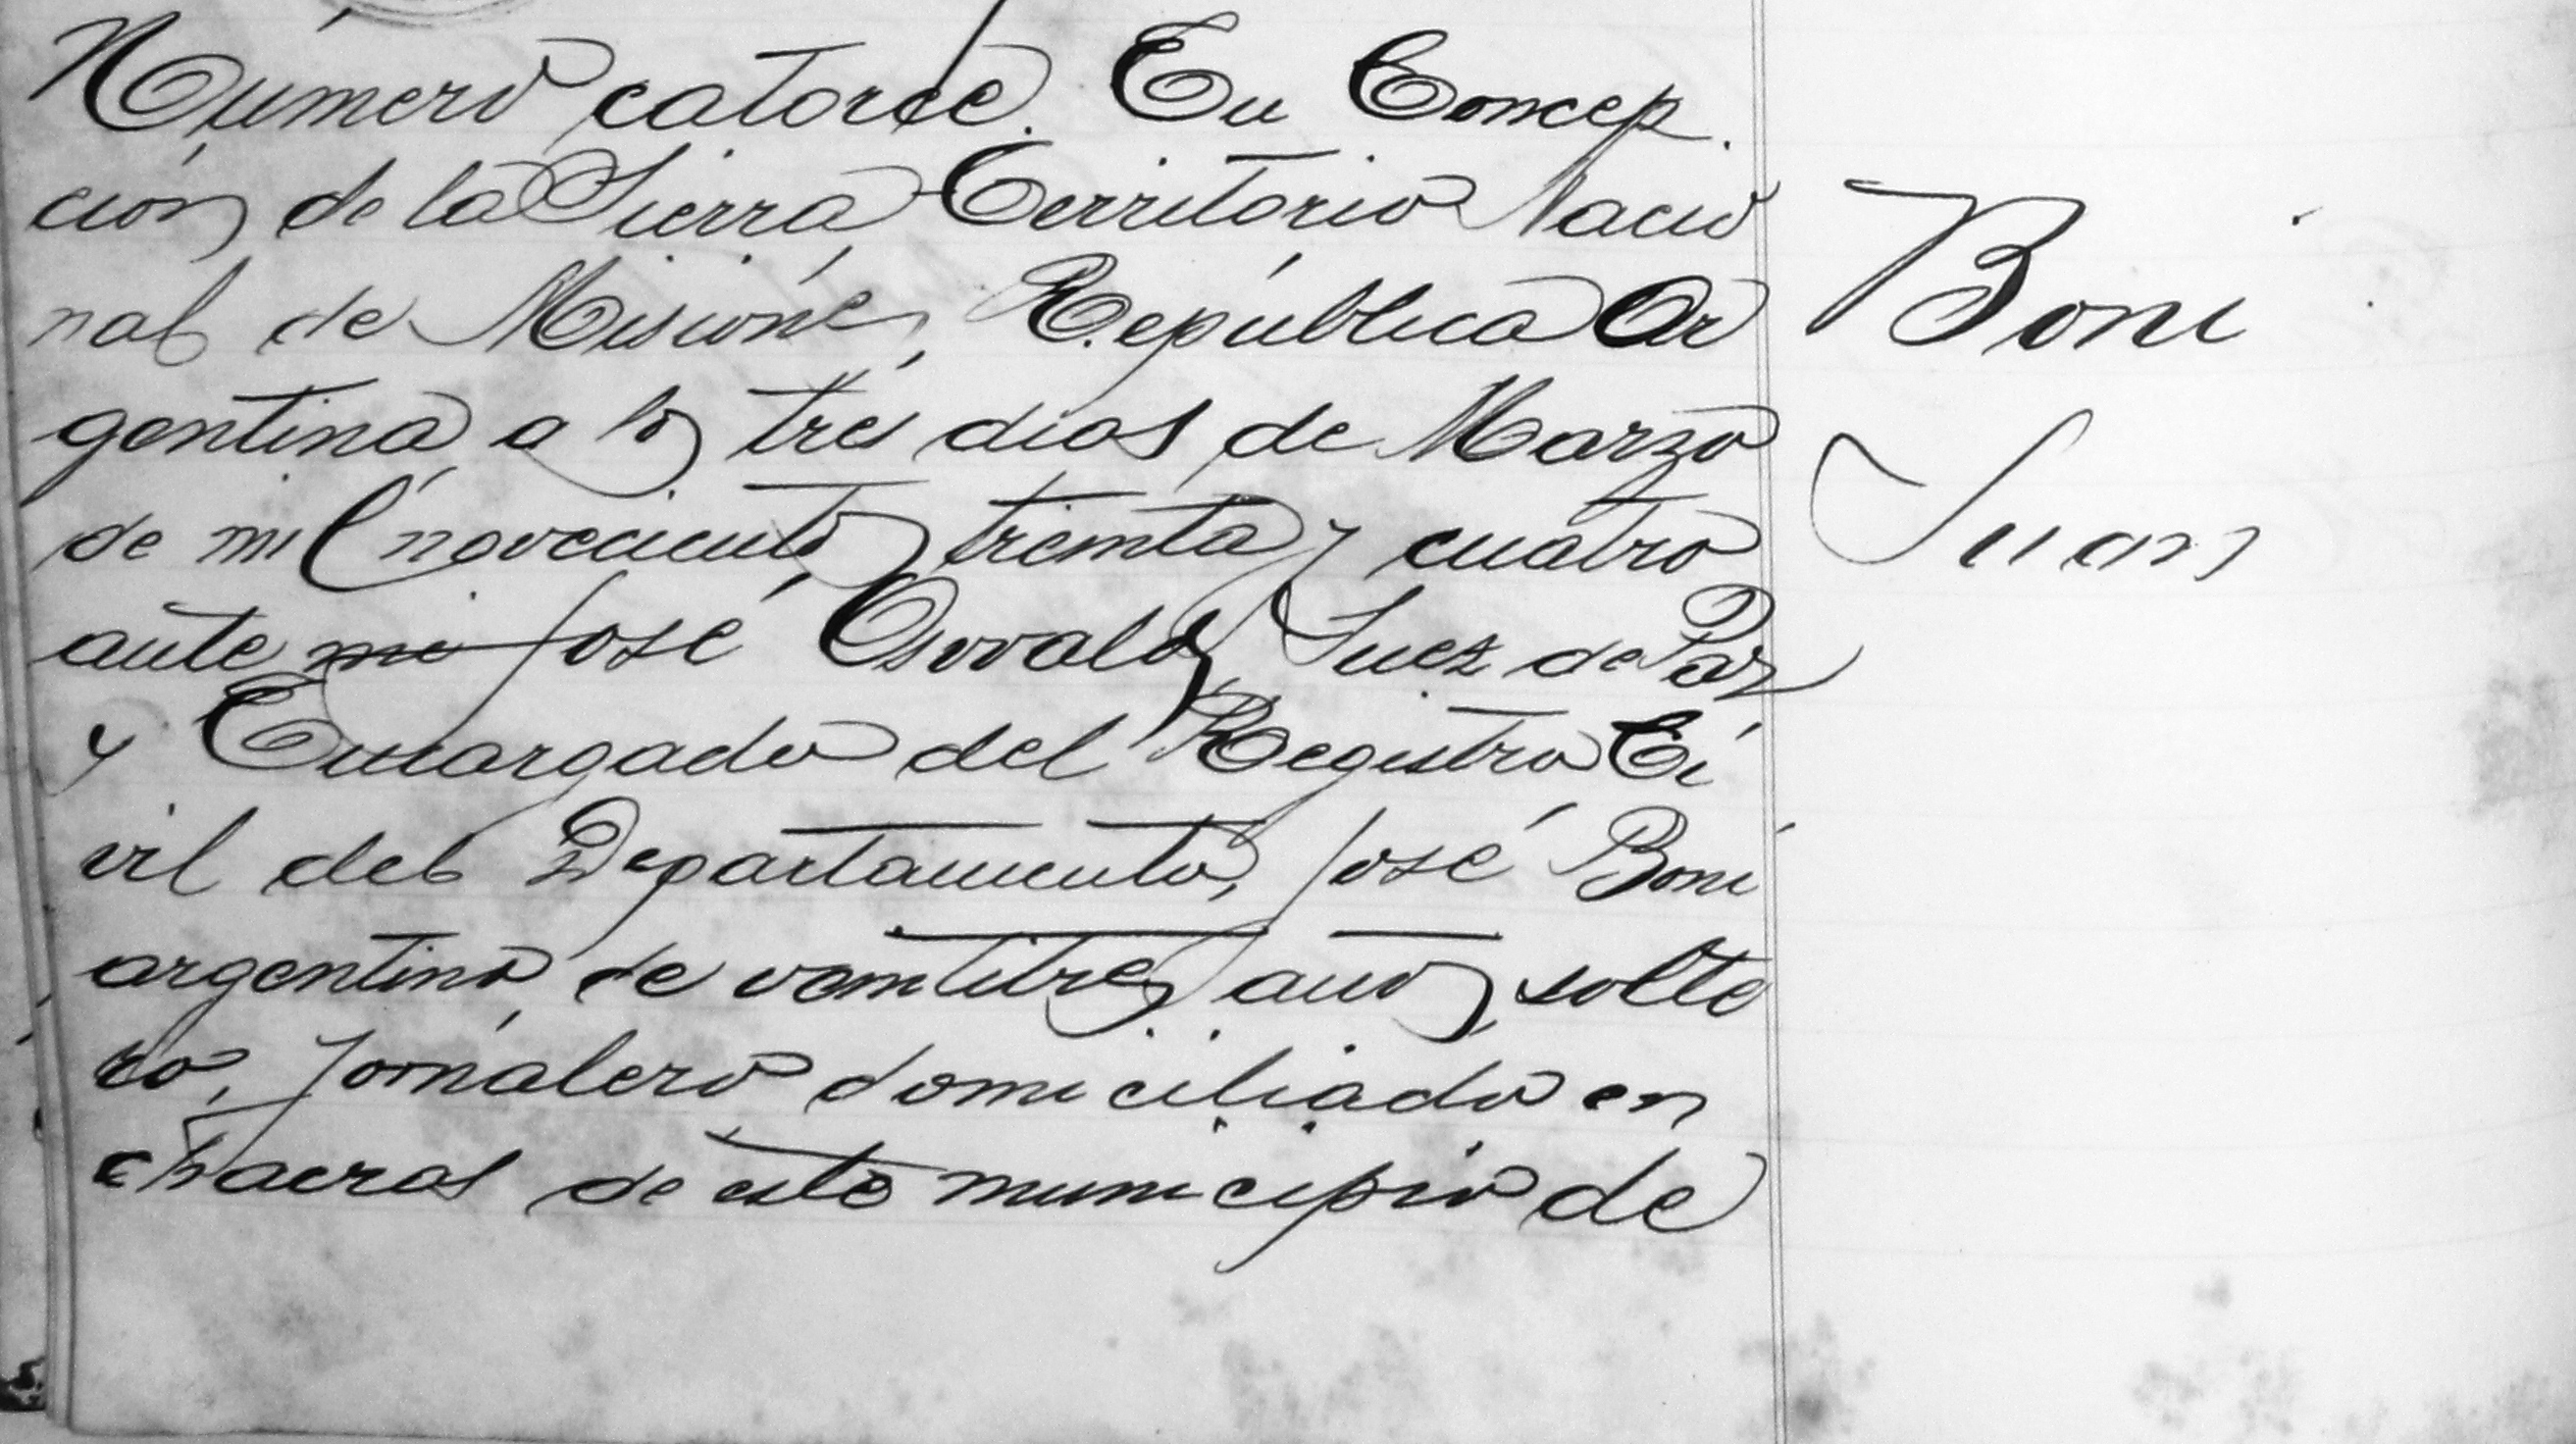 Número catorce. En Concep
ción de la Sierra Territorio Nacio
nal de Misiones, República Ar
gentina a los tres dias de Marzo
de mil novecientos treinta y cuatro
ante mi José Osvaldo Juez de Paz
y Encargado del Registro Ci
vil del Departamento, José Boni
argentino de veintitres años solte
ro, jornalero domiciliado en
chacras de este municipio de
Boni
Juan